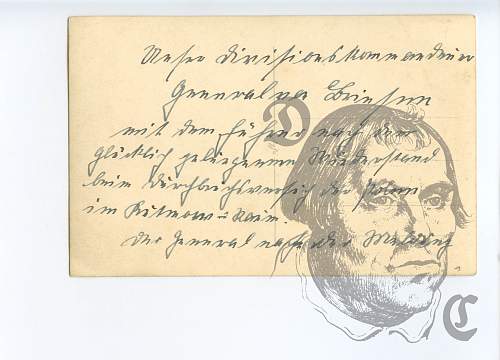 Unser Divisionskommandeur
General von Briesen
mit dem Führer nach dem
glücklich gelungenen Widerstand
beim Durchbruchsversuch der Polen
im Kutnow-Raum.
Der General nach der Meldung
D
C